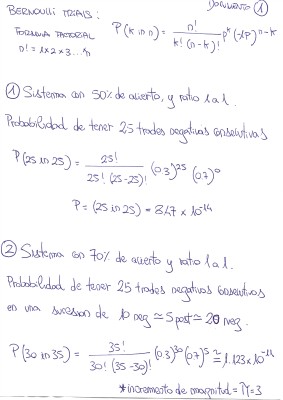 BERNOULLI TRIALS:
DOCUMENTO ①
FORMULA FACTORIAL
n! = 1x2x3...n
P(k in n) = n! / k! (n-k)! p^k (1-p)^n-k
① Sistema con 50% de acierto, y ratio 1 a 1.
Probabilidad de tener 25 trades negativos consecutivos
P(25 in 25) = 25! / 25! (25-25)! (0.3)^25 (0.7)^0
P = (25 in 25) = 8.47 x 10^-14
② Sistema con 70% de acierto y ratio 1 a 1.
Probabilidad de tener 25 trades negativos consecutivos
en una sucesion de 10 neg ≃ 5 post ≃ 20 neg.
P(30 in 35) = 35! / 30! (35-30)! (0.3)^30 (0.7)^5 ≃ 1.123 x 10^-11
*incremento de magnitud = = 3